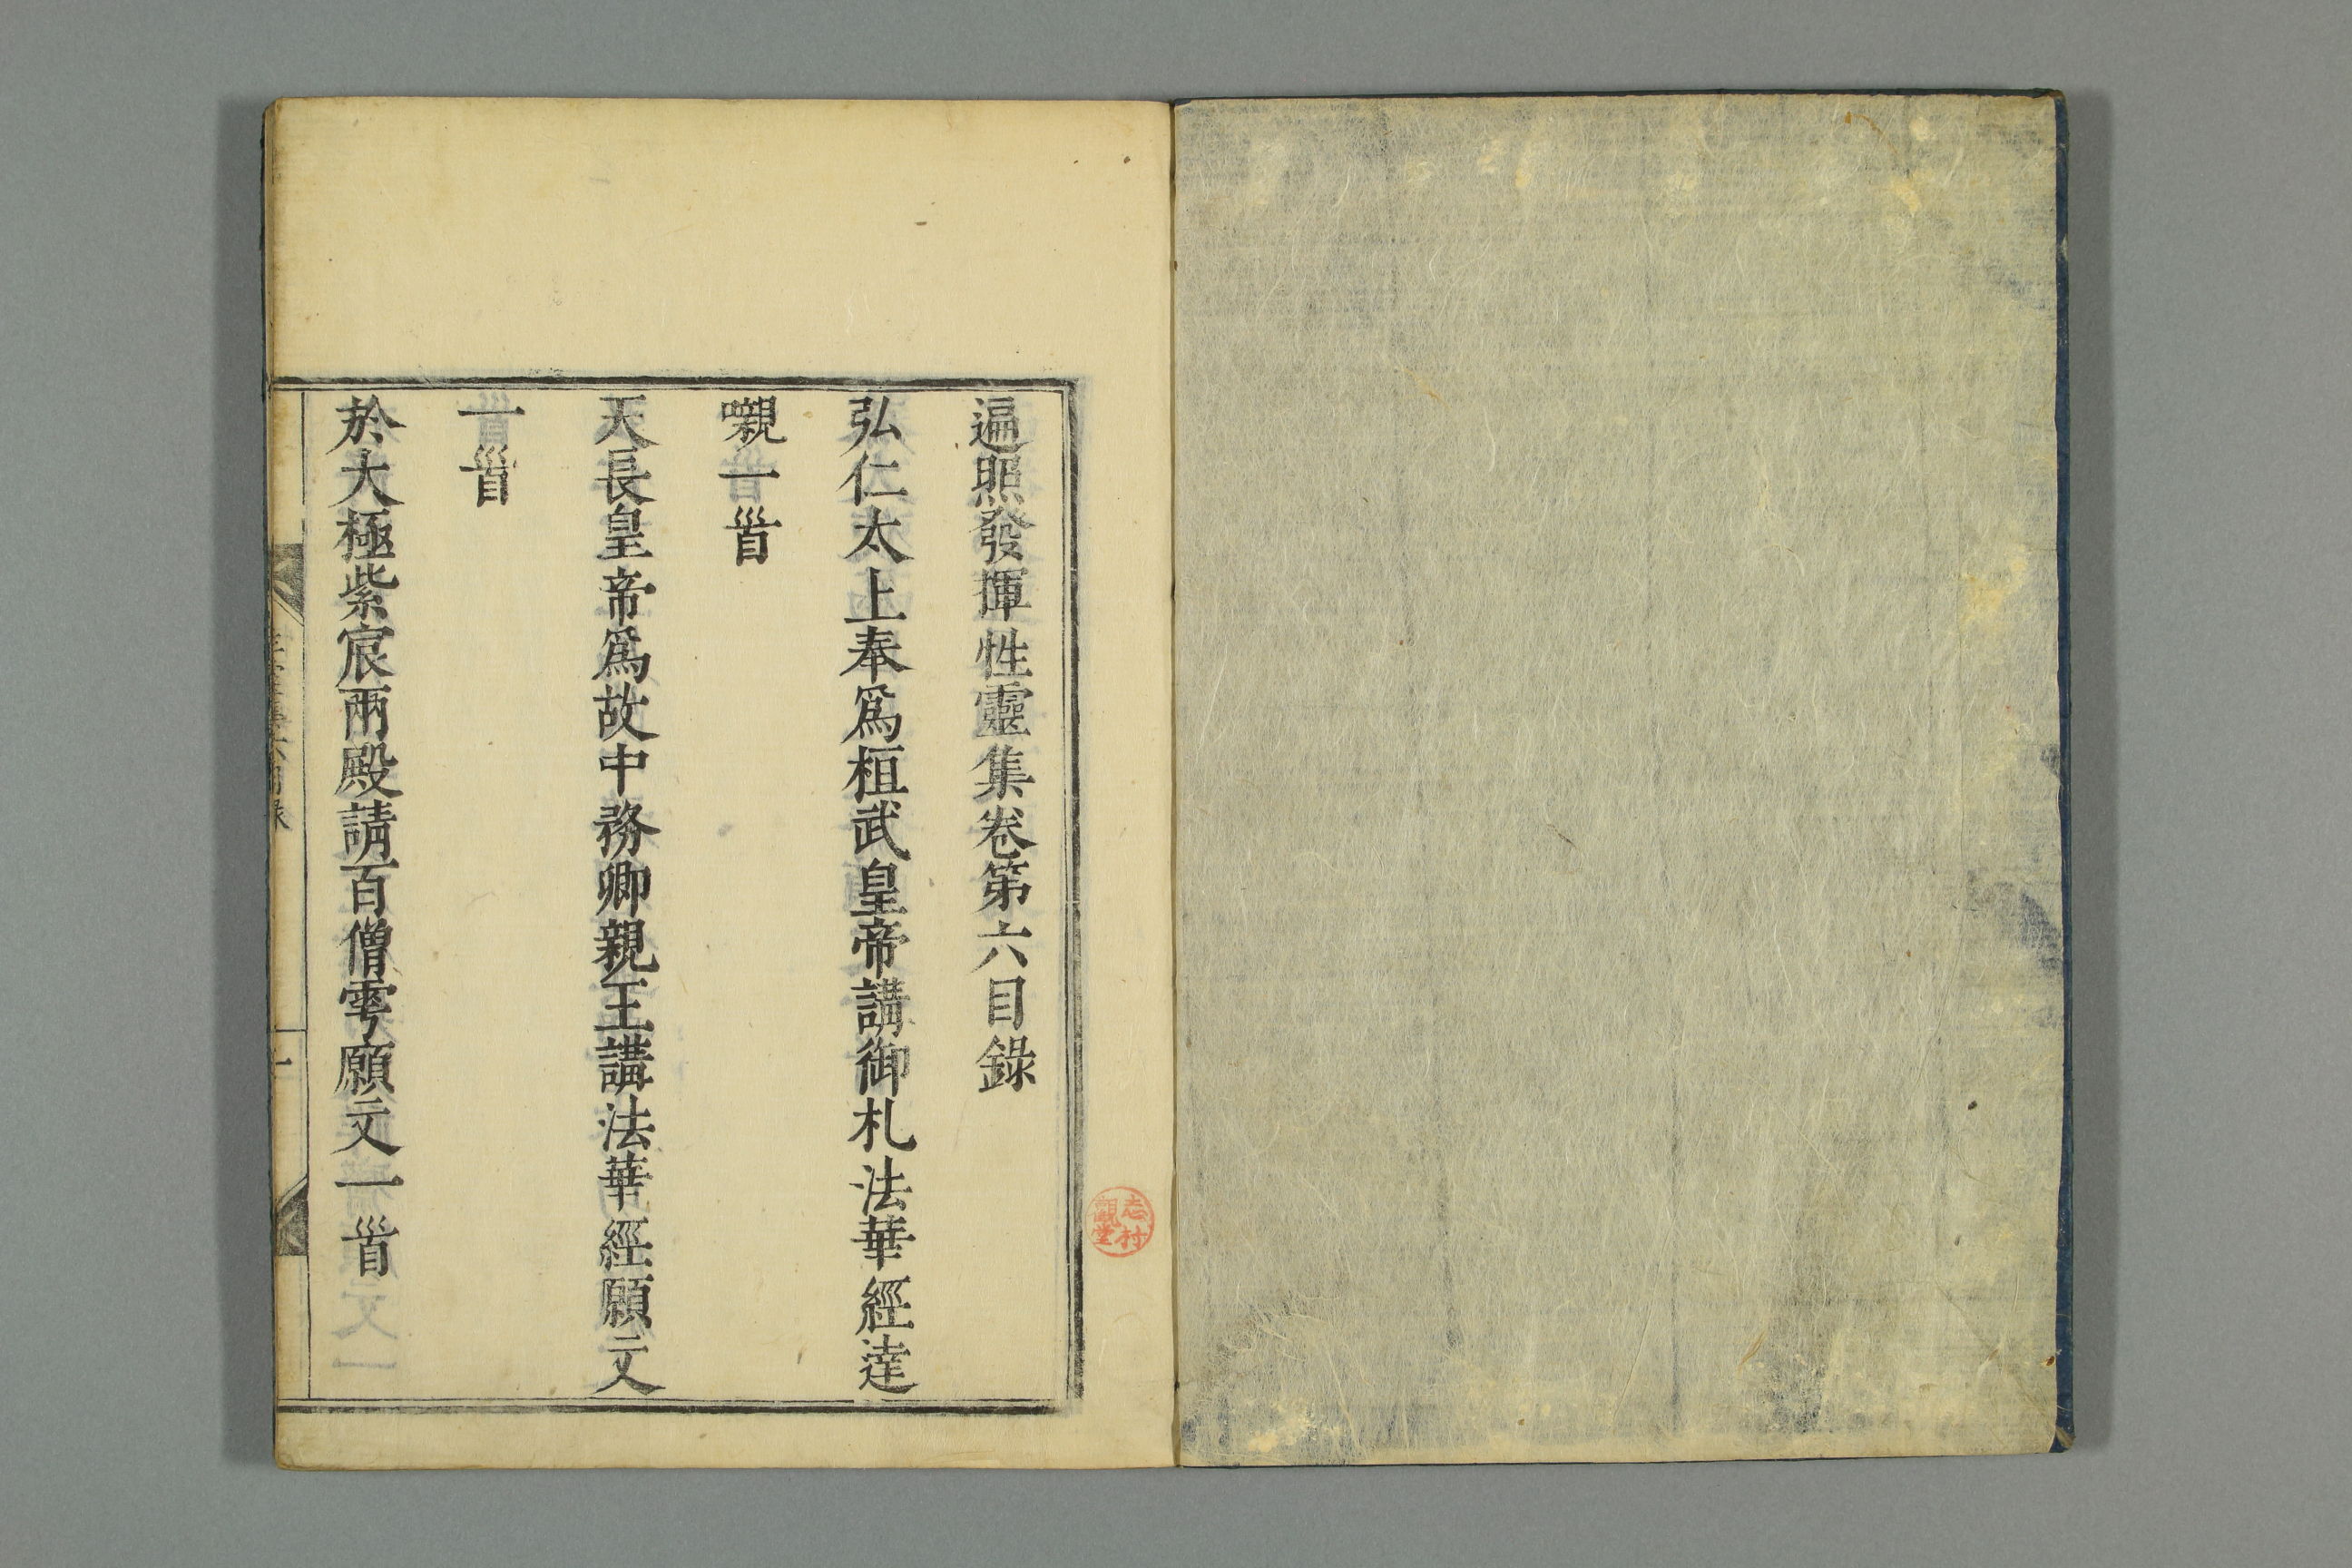 遍照發揮性靈集卷第六目錄
弘仁太上奉爲桓武皇帝講御札法華經達
嚫一首
天長皇帝爲故中務卿親王講法華經願文
一首
於大極紫宸兩殿請百僧雩願文一首
志村
觀堂